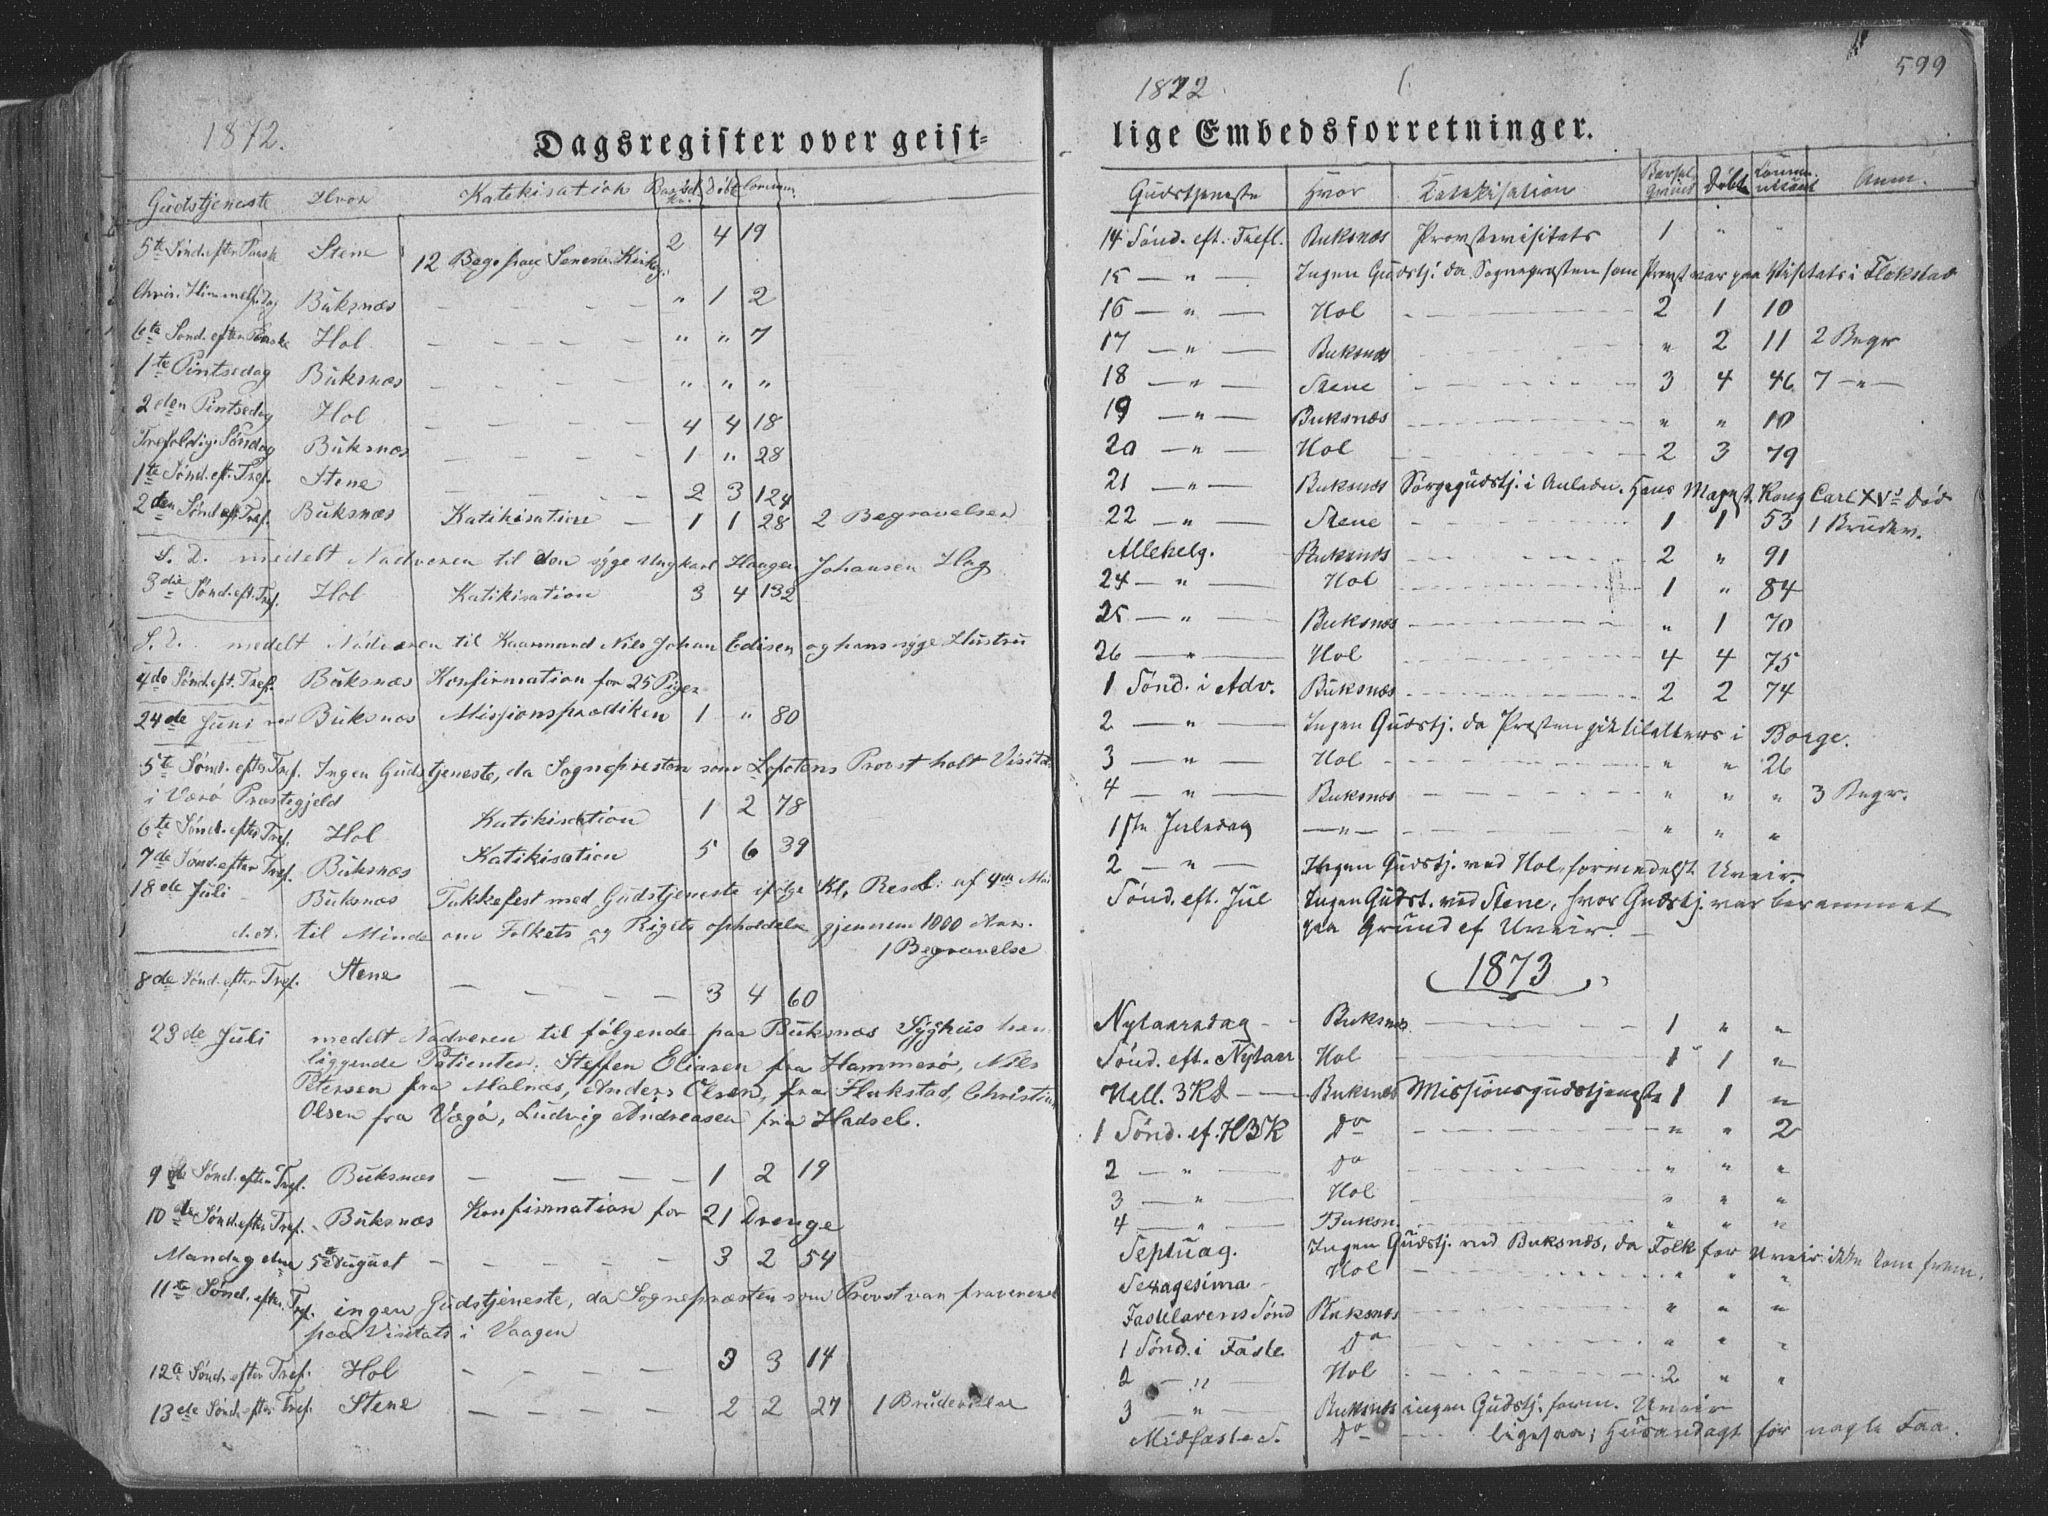 1872.
Dagsregister over geist=
Gudstjeneste Hvor Katikisation Barsel Døbt Commun.
5te Sønd. efter Paask Stene 12 Begr. paa Senere Kirkg. 2 4 19
Chris. Himmelf. Dag Buksnæs — — — — " 1 2
6te Sønd. efter Paaske Hol — — — — " " 7
1te Pintsedag Buksnæs — — — — " " "
2den Pintsedag Hol — — — — 4 4 18
Trefoldig. Søndag Buksnæs — — — — 1 " 28
1te Sønd. eft. Tref. Stene — — — — 2 3 124
2den Sønd. eft. Tref. Buksnæs Katikisation — 1 1 28 2 Begravelser
S. D. medelt Nadveren til den syge Ungkarl Haagen Johansen Hag
3die Sønd. eft. Tref. Hol Katikisation 3 4 132
S. D. medelt Nadveren til Kaarmand Nils Johan Edisen og hans syge Hustru
4de Sønd. eft. Tref. Buksnæs Konfirmation for 25 Piger
24de Juni ved Buksnæs Missionsprædiken 1 " 80
5te Sønd. efter Tref. Ingen Gudstjeneste, da Sognepresten som Lofotens Provst holt Visitats
i Værø Præstegjeld
6te Sønd. efter Tref. Hol Katikisation 1 2 78
7de Sønd. efter Tref. Buksnæs Katikisation 5 6 39
18de Juli Buksnæs Takkefest med Gudstjeneste ifølge Kl. Resol: af 4de Mai
d. A. til Minde om Folkets og Rigets opholdelse gjennem 1000 Aar.
1 Begravelse
8de Sønd. efter Tref. Stene — — — — 3 4 60
23de Juli medelt Nadveren til følgende paa Buksnæs Syghus hen
liggende Patienter: Steffen Eliasen fra Hammerø, Nils
Petersen fra Malnæs, Anders Olsen, fra Flakstad, Christian
Olsen fra Vægø, Ludvig Andreasen fra Hadsel.
9de Sønd. efter Tref. Buksnæs — — — — 1 2 19
10de Sønd. efter Tref. Buksnæs Konfirmation for 21 Drenge
Mandag den 5te August — — — — 3 2 54
11te Sønd. efter Tref. ingen Gudstjeneste, da Sognepræsten som Provst var fraværende
paa Visitats i Vaagen
12te Sønd. efter Tref. Hol — — — — 3 3 14
13de Sønd. efter Tref. Stene — — — — 2 2 27 1 Brudevielse
599
1872
lige Embedsforretninger.
Gudstjeneste Hvor Katekisation Døbte Anm.
14 Sønd. eft. Trefl. Buksnæs Provstevisitats 1 " "
15 — " — Ingen Gudstj. da Sognepresten som Provst var paa Visitats i Flakstad
16 — " — Hol 2 1 10
17 — " — Buksnæs " 2 11 2 Begr
18 — " — Stene 3 4 46 7 — " —
19 — " — Buksnæs " " 10
20 — " — Hol 2 3 79
21 — " — Buksnæs Sørgegudstj. i Anledn. Hans Majest. Kong Carl XVs Død
22 — " — Stene 1 1 53 1 Brudev.
Allehelg. Buksnæs 2 " 91
24 — " — Hol 1 " 84
25 — " — Buksnæs " 1 70
26 — " — Hol 4 4 75
1 Sønd. i Adv. Buksnæs 2 2 74
2 — " — Ingen Gudstj. da Presten gik tilalters i Borge.
3 — " — Hol " " 26
4 — " — Buksnæs " " " 3 Begr.
1ste Juledag — " — " " "
2 — " — Ingen Gudstj. ved Hol, formedelst Uveir.
Sønd. eft. Jul Ingen Gudst. ved Stene, hvor Gudstj. var berammet
paa Grund af Uveir. —
1873
Nytaarsdag Buksnæs 1 " "
Sønd. eft. Nytaar Hol 1 1 "
Hell. 3 K D — Buksnæs Missionsgudstjeneste 1 1 "
1 Sønd. ef. H3K Do " " 2
2 — " — Do " " "
3 — " — Hol " " "
4 — " — Buksn. " " "
Septuag. Ingen Gudstj. ved Buksnæs, da Folk for Uveir ikke kom frem.
Sexagesima — Hol " " "
Fastelavens Sønd Buksnæs " " "
1 Sønd. i Faste Do " " "
2 — " — Hol 2 " "
3 — " — Buksnæs ingen Gudstj. form. Uveir
Midfaste S. Do — ligesaa; Husandagt for nogle Faa.